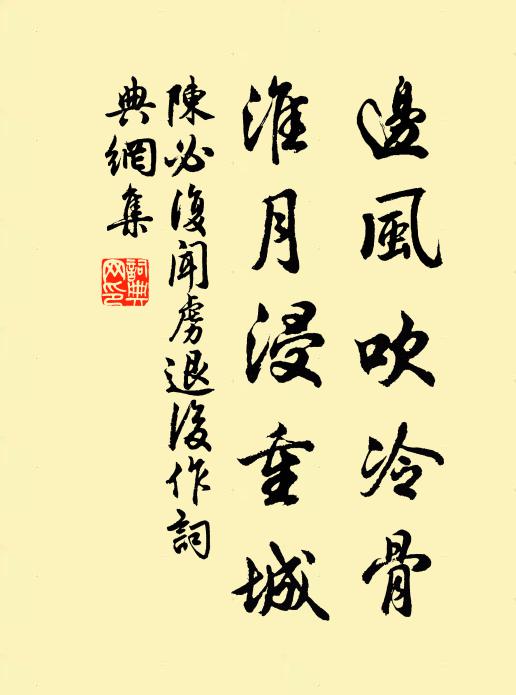 邊風吹冷骨
淮月浸重城
陳必復聞虜退後作詞
典網集
詞典
网印